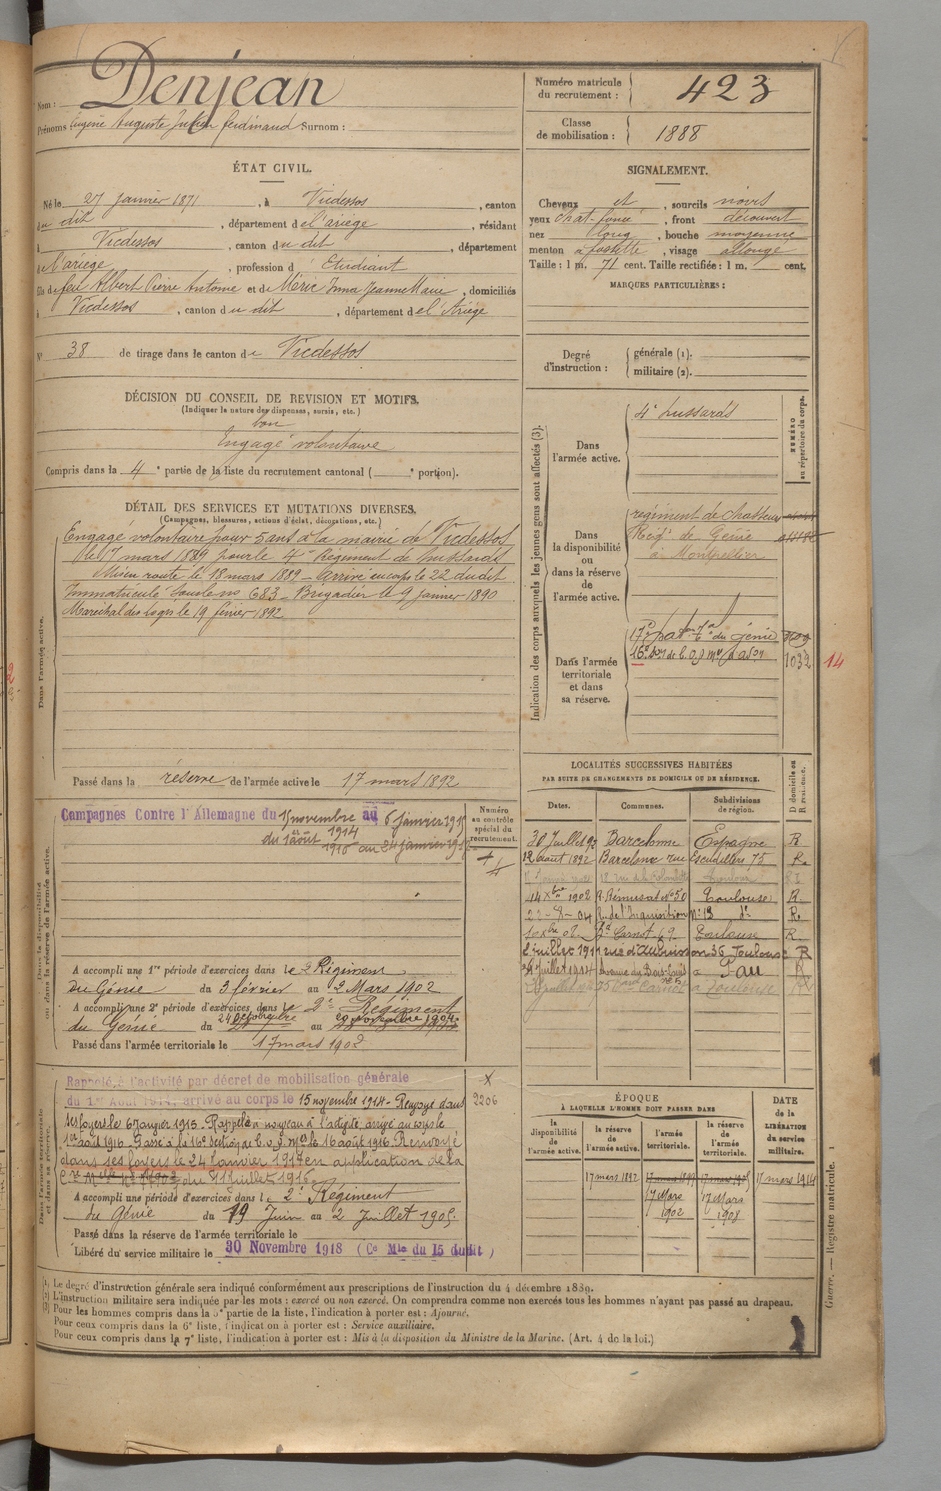 Nom : Denjean
Prénoms Eugène Auguste Julien ferdinand Surnom :
Numéro matricule du recrutement : 423
Classe de mobilisation : 1888
ÉTAT CIVIL.
Né le 27 janvier 1871, à Vicdessos, canton
du dit, département de l'ariège, résidant
à Vicdessos, canton du dit, département
de l'ariège, profession d' Etudiant
fils de feu Albert Pierre Antoine et de Méric Anna Jeanne Marie, domiciliés
à Vicdessos, canton du dit, département de l'Ariège
N° 38 de tirage dans le canton de Vicdessos
SIGNALEMENT.
Cheveux et, sourcils noirs
yeux chat. foncé, front découvert
nez long, bouche moyenne
menton à fossette, visage allongé
Taille : 1 m. 71 cent. Taille rectifiée : 1 m. cent.
MARQUES PARTICULIÈRES :
Degré d'instruction : générale (1).
militaire (2).
DÉCISION DU CONSEIL DE REVISION ET MOTIFS.
(Indiquer la nature des dispenses, sursis, etc.)
bon
Engagé volontaire
Compris dans la 4e partie de la liste du recrutement cantonal ( e portion).
DÉTAIL DES SERVICES ET MUTATIONS DIVERSES.
(Campagnes, blessures, actions d'éclat, décorations, etc.)
Dans l'armée active.
Engagé volontaire pour 5 ans à la mairie de Vicdessos
le 17 mars 1889 pour le 4e Régiment de hussards
Mis en route le 18 mars 1889 - Arrivé au corps le 22 du dit.
Immatriculé sous le no 683 - Brigadier le 9 janvier 1890
Maréchal des logis le 19 février 1892
Passé dans la réserve de l'armée active le 17 mars 1892
Indication des corps auxquels les jeunes gens sont affectés (3).
NUMÉRO au répertoire du corps.
Dans l'armée active.
4e hussards
Dans la disponibilité ou dans la réserve de l'armée active.
régiment de chasseurs
Régt de Génie
à Montpellier
Dans l'armée territoriale et dans sa réserve.
du génie
1032
14
LOCALITÉS SUCCESSIVES HABITÉES
PAR SUITE DE CHANGEMENTS DE DOMICILE OU DE RÉSIDENCE.
Dates. Communes. Subdivisions de région. D domicile ou R résidence.
30 Juillet 92 Barcelonne Espagne R
12 août 1892 Barcelone rue Escudillers 75 R.
14 Xbre 1902 R. Rémusat No 50 Toulouse R.
22-8-04 R. de l'Inquisition No 13 do R.
Bd Carnot 69 Toulouse R.
2 juillet 1911 rue d'Aubuisson 36 Toulouse R
Juillet 1914 Pau R
Toulouse
Campagnes Contre l'Allemagne du 15 novembre 1914 au 6 janvier 1915
du 1er août 1916 au 24 janvier 1917
Numéro au contrôle spécial du recrutement.
Dans la disponibilité ou dans la réserve de l'armée active.
A accompli une 1re période d'exercices dans le 2e Régiment
du Génie du 3 février au 2 Mars 1902
A accompli une 2e période d'exercices dans le 2e Régiment
du Génie du 24 octobre au 20 novembre 1904
Passé dans l'armée territoriale le 17 mars 1902
Dans l'armée territoriale et dans sa réserve.
Rappelé à l'activité par décret de mobilisation générale
du 1er Août 1914, arrivé au corps le 15 novembre 1914 - Renvoyé dans
ses foyers le 6 Janvier 1915. Rappelé à nouveau à l'activité, arrivé au corps le
1er août 1916. Passé à la 16e section de c.o.a. le 16 août 1916. Renvoyé
dans ses foyers le 24 Janvier 1917 en application de la
du 11 Juillet 1916
2206
A accompli une période d'exercices dans le 2e Régiment
du Génie du 19 Juin au 2 Juillet 1905.
Passé dans la réserve de l'armée territoriale le
Libéré du service militaire le 30 Novembre 1918 (Ce Mle du 15 dudit)
ÉPOQUE
À LAQUELLE L'HOMME DOIT PASSER DANS
la disponibilité de l'armée active. la réserve de l'armée active. l'armée territoriale. la réserve de l'armée territoriale. DATE de la LIBÉRATION du service militaire.
17 mars 1892 17 mars 1899 17 mars 1914
17 Mars 1902 17 Mars 1908
(1) Le degré d'instruction générale sera indiqué conformément aux prescriptions de l'instruction du 4 décembre 1889.
(2) L'instruction militaire sera indiquée par les mots : exercé ou non exercé. On comprendra comme non exercés tous les hommes n'ayant pas passé au drapeau.
(3) Pour les hommes compris dans la 5e partie de la liste, l'indication à porter est : Ajourné.
Pour ceux compris dans la 6e liste, l'indication à porter est : Service auxiliaire.
Pour ceux compris dans la 7e liste, l'indication à porter est : Mis à la disposition du Ministre de la Marine. (Art. 4 de la loi.)
Guerre. — Registre matricule. 1